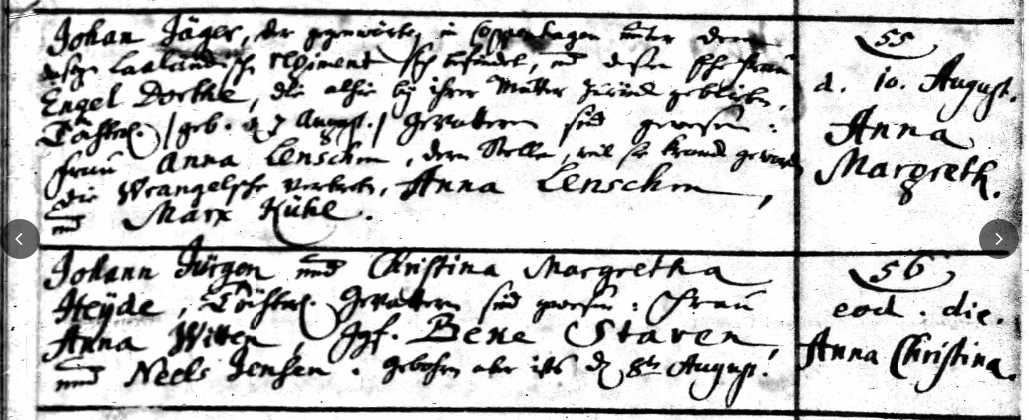 Johan Jäger, der gegenwärtig in Coppenhagen unter dem
Laalandische Regiment sich befindet, und deßen Ehe frau
Engel Dorthe, die alhie by ihrer Mutter zurück geblieben,
Töchterl. /geb. d 7 August./ Gevattern sind gewesen:
Frau Anna Lenschen, deren Stelle, weil sie kranck geworden
die Wrangelsche vertreten, Anna Lenschen,
und Marx Kühl.
55
d. 10. August.
Anna
Margreth.
Johann Jürgen und Christina Margretha
Heyde, Töchterl. Gevattern sind gewesen: Frau
Anna Witten, Jgf. Bene Staven,
und Neels Jensen. gebohren aber ists d 8ten August.
56
eod. die.
Anna Christina.